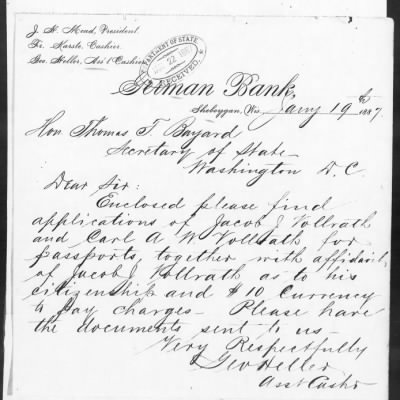 J. H. Mead, President.
Fr. Karste, Cashier.
Geo. Heller, Ass't Cashier
DEPARTMENT OF STATE
22 1887
RECEIVED.
German Bank,
Sheboygan, Wis., Jany 19th 1887.
Hon. Thomas F. Bayard
Secretary of State -
Washington D. C.
Dear Sir:
Enclosed please find
applications of Jacob J Vollrath
and Carl A W Vollrath for
passports, together with affidavit
of Jacob J Vollrath as to his
citizenship and $10 Currency
to pay charges - Please have
the documents sent to us -
Very Respectfully
Geo Heller
Asst Cashr